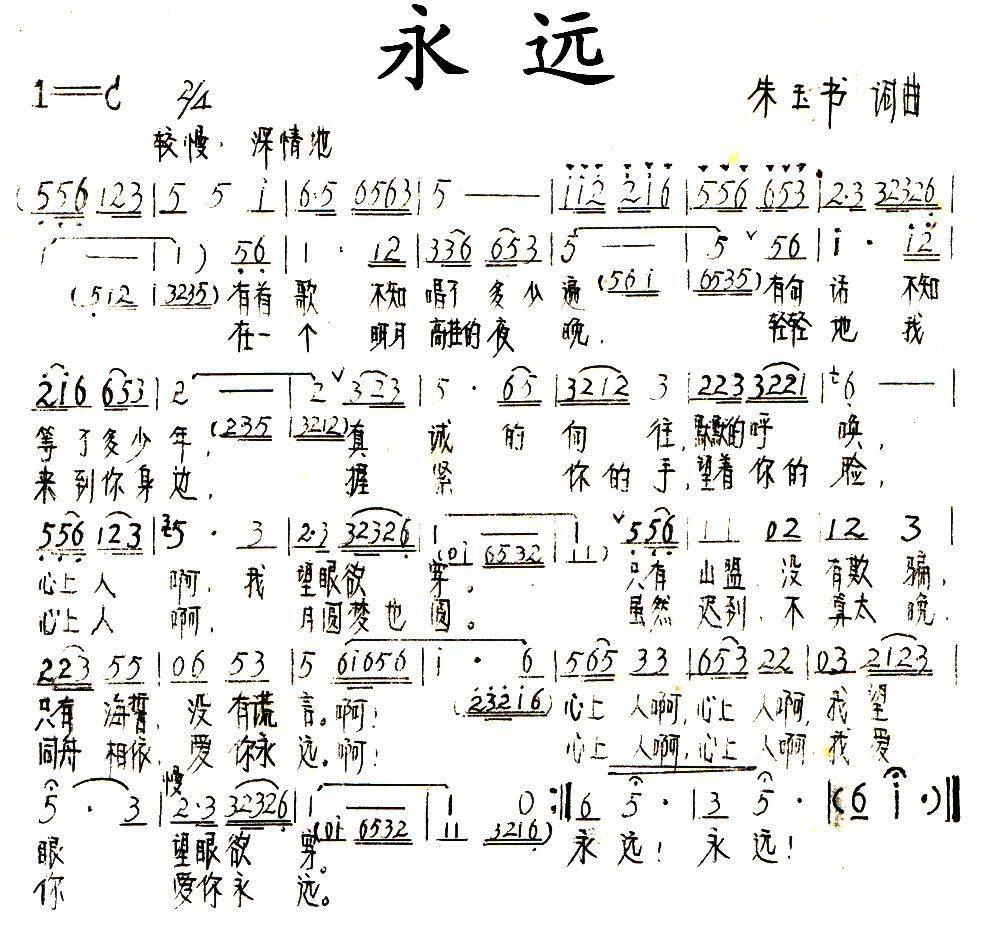 永远
1=C 2/4 朱玉书 词曲
较慢.深情地
(556 123|5 5 i|6·5 0563|5 — —|ii2 2i6|556 653|2·3 32326|
i — —|1) 56|1 · 12|336 653|5 — —|5 ˇ 56|i · i2|
(512 |3235) 有首歌 不知唱了多少遍 (56i |6535) 有句话 不知
在一个 明月高挂的夜晚. 轻轻地我
2i6 653|2 — —|2 ˇ 323|5 · 65|3212 3|223 3221|6 — —|
等了多少年, (235 |3212) 真诚的向往,默默的呼唤,
来到你身边, 握紧你的手,望着你的脸,
556 123|5 · 3|2·3 32326|1 — —|1 ˇ 556|11 02|12 3|
(0i 6532|11)
心上人啊,我望眼欲穿。 只有山盟,没有欺骗,
心上人啊,月圆梦也圆。 虽然迟到,不算太晚,
223 55|06 53|5 6i656|i · 6|565 33|653 22|03 2123|
(232i6)
只有海誓,没有谎言。啊! 心上人啊,心上人啊,我望
同舟相依,爱你永远。啊! 心上人啊,心上人啊,我爱
慢
5 · 3|2·3 32326|1 — —|1 0:‖6 5 ·|3 5 ·|(6 i ·)‖
(0i 6532|11 3216)
眼 望眼欲穿。 永远! 永远!
你 爱你永远。